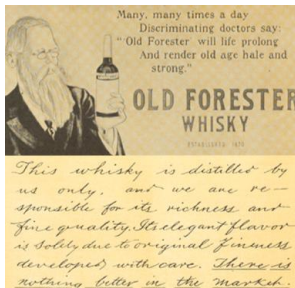 Many, many times a day
Discriminating doctors say:
"Old Forester will life prolong
And render old age hale and
strong."
OLD FORESTER
WHISKY
ESTABLISHED 1870
This whisky is distilled by
us only, and we are re-
sponsible for its richness and
fine quality. Its elegant flavor
is solely due to original fineness
developed with care. There is
nothing better in the market.